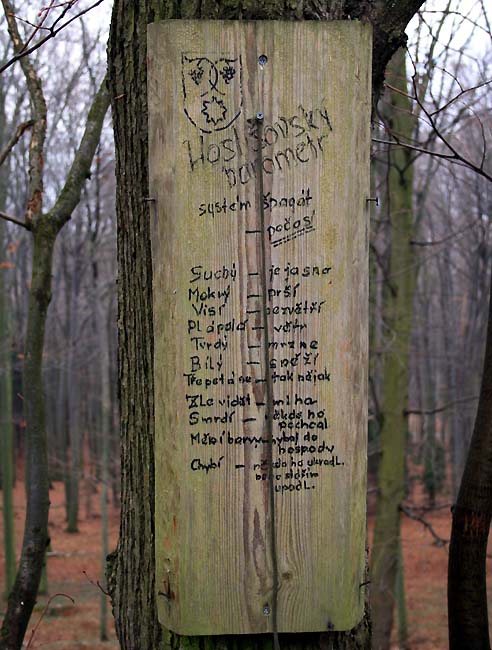 Hostišovský
barometr
systém špagát
— počasí
Suchý — je jasno
Mokrý — prší
Visí — bezvětří
Plápolá — vítr
Tvrdý — mrzne
Bílý — sněží
Třepetá se — tak nějak
Zle vidět — mlha
Smrdí — někdo ho
pochcal
Mění barvu — hybaj do
hospody
Chybí — někdo ho ukradl.
upadl.